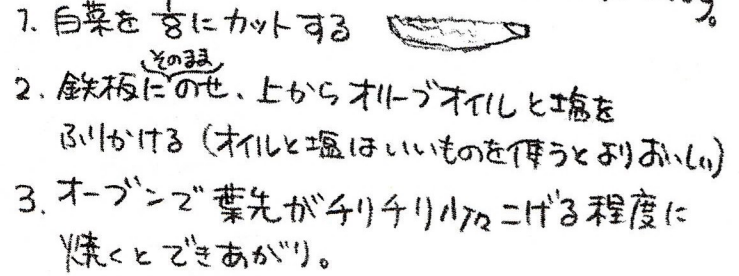 1. 白菜を1/8にカットする
2. 鉄板にそのままのせ、上からオリーブオイルと塩を
ふりかける（オイルと塩はいいものを使うとよりおいしい）
3. オーブンで葉先がチリチリ少々こげる程度に
焼くとできあがり。